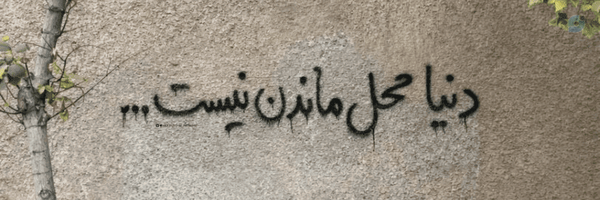 دنیا محل ماندن نیست...